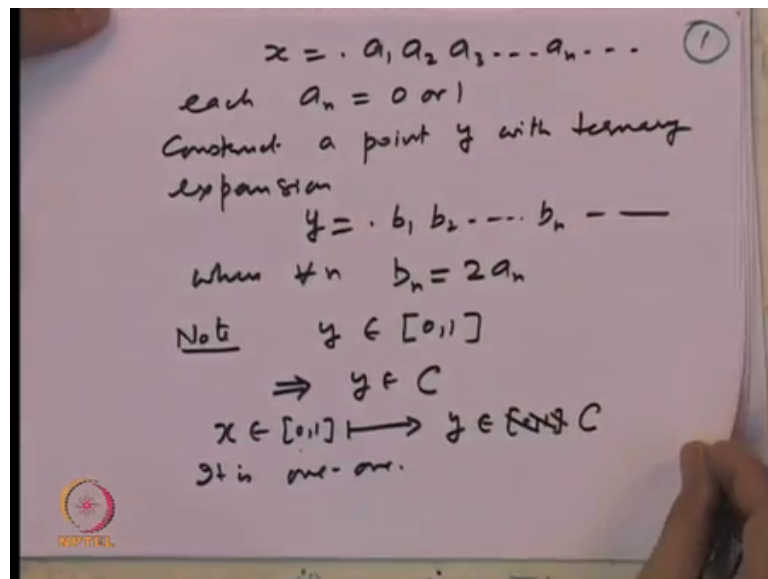 x = . a₁ a₂ a₃ --- aₙ ---
1
each aₙ = 0 or 1
Construct a point y with ternary
expansion
y = . b₁ b₂ ---- bₙ - —
when ∀n bₙ = 2aₙ
Note y ∈ [0,1]
⇒ y ∈ C
x ∈ [0,1] ⟼ y ∈ C
It is one-one.
NPTEL